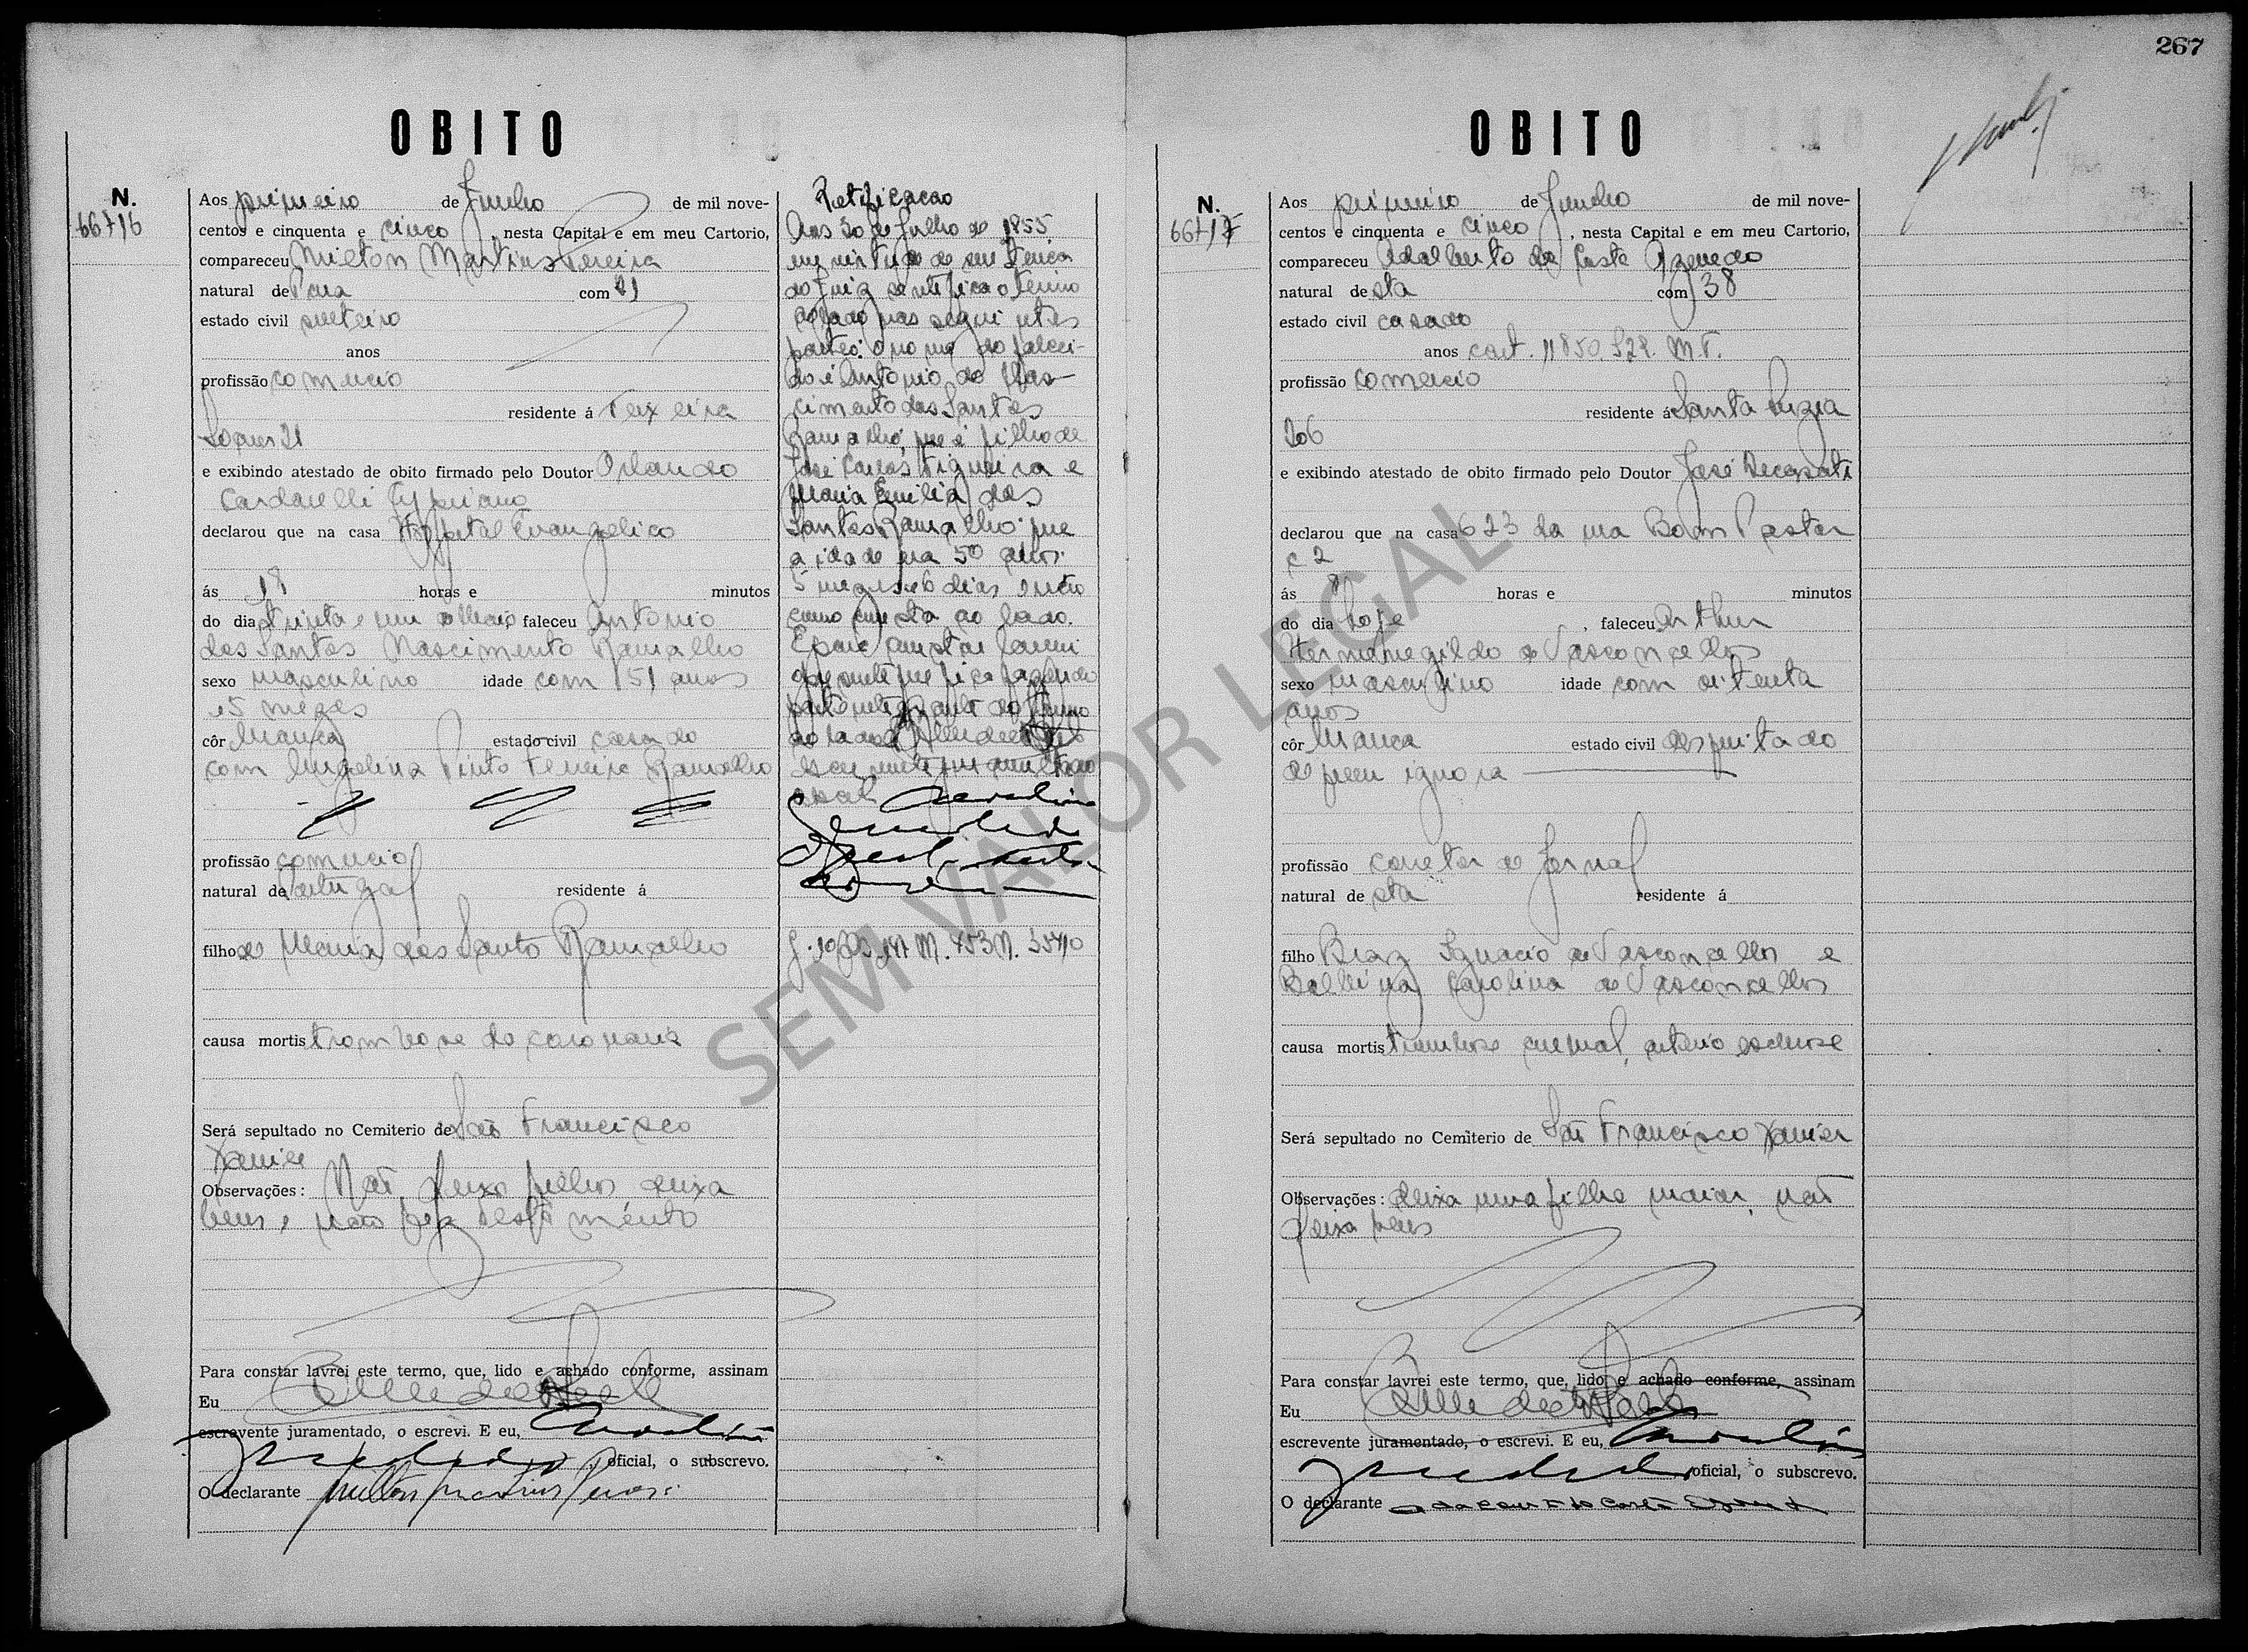 267
OBITO
N.
66716
Aos primeiro de Junho de mil nove-
centos e cinquenta e cinco, nesta Capital e em meu Cartorio,
compareceu Milton Martins Pereira
natural de Para com 21
estado civil solteiro
anos
profissão comercio
residente á Teixeira
Soares 21
e exibindo atestado de obito firmado pelo Doutor Orlando
Cardarelli Cypriano
declarou que na casa Hospital Evangelico
ás 18 horas e minutos
do dia trinta e um de Maio, faleceu Antonio
dos Santos Nascimento Ramalho
sexo masculino idade com 51 anos
e 5 mezes
côr branca estado civil casado
com Angelina Pinto Ferreira Ramalho
profissão comercio
natural de Portugal residente á
filho de Maria dos Santo Ramalho
causa mortis trombose da coronaria
Será sepultado no Cemiterio de São Francisco
Xavier
Observações: Não deixa filhos, deixa
bens, não fez testamento
Para constar lavrei este termo, que, lido e achado conforme, assinam
Eu
escrevente juramentado, o escrevi. E eu,
oficial, o subscrevo.
O declarante Milton Martins Pereira
Retificacao
Aos 30 de Julho de 1955
em virtude de sentença
do Juiz retifica o termo
ao lado nas seguintes
partes: o nome do faleci-
do é Antonio do Nas-
cimento dos Santos
Ramalho, que é filho de
José Carlos Figueira e
Maria Emilia dos
Santos Ramalho: que
a idade era 50 anos
5 mezes 6 dias e não
como consta ao lado.
E para constar lavrei
o presente que fica fazendo
parte integrante do termo
ao lado
OBITO
N.
66717
Aos primeiro de Junho de mil nove-
centos e cinquenta e cinco, nesta Capital e em meu Cartorio,
compareceu Adalberto da Costa Azevedo
natural de sta com 38
estado civil casado
anos cart. 11850 S22. M.T.
profissão comercio
residente á Santa Luzia
206
e exibindo atestado de obito firmado pelo Doutor José Decusati
declarou que na casa 623 da rua Bom Pastor
c 2
ás 8 horas e minutos
do dia hoje, faleceu Arthur
Hermenegildo de Vasconcellos
sexo masculino idade com oitenta
anos
côr branca estado civil desquitado
de quem ignora
profissão corretor de Jornal
natural de sta residente á
filho Braz Ignacio de Vasconcellos e
Balbina Carolina de Vasconcellos
causa mortis trombose cerebral, arterio esclerose
Será sepultado no Cemiterio de São Francisco Xavier
Observações: deixa uma filha maior, não
deixa bens
Para constar lavrei este termo, que, lido e achado conforme, assinam
Eu
escrevente juramentado, o escrevi. E eu,
oficial, o subscrevo.
O declarante Adalberto da Costa Azevedo
SEM VALOR LEGAL